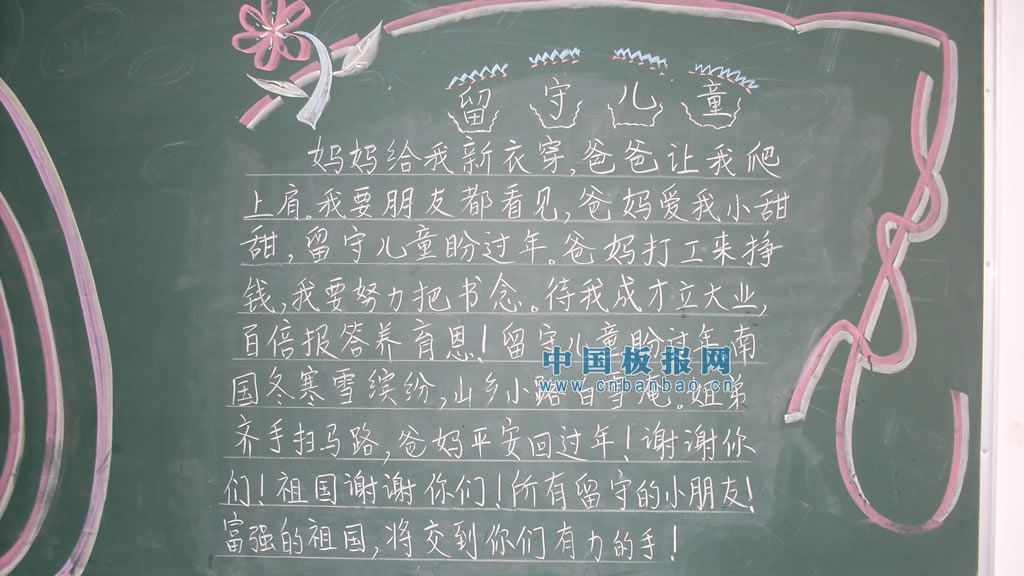 留守儿童
妈妈给我新衣穿,爸爸让我爬
上肩。我要朋友都看见,爸妈爱我小甜
甜,留守儿童盼过年。爸妈打工来挣
钱,我要努力把书念。待我成才立大业,
百倍报答养育恩!留守儿童盼过年,南
国冬寒雪缤纷,山乡小路白雪掩。姐弟
齐手扫马路,爸妈平安回过年!谢谢你
们!祖国谢谢你们!所有留守的小朋友!
富强的祖国,将交到你们有力的手!
中国板报网
www.cnbanbao.cn